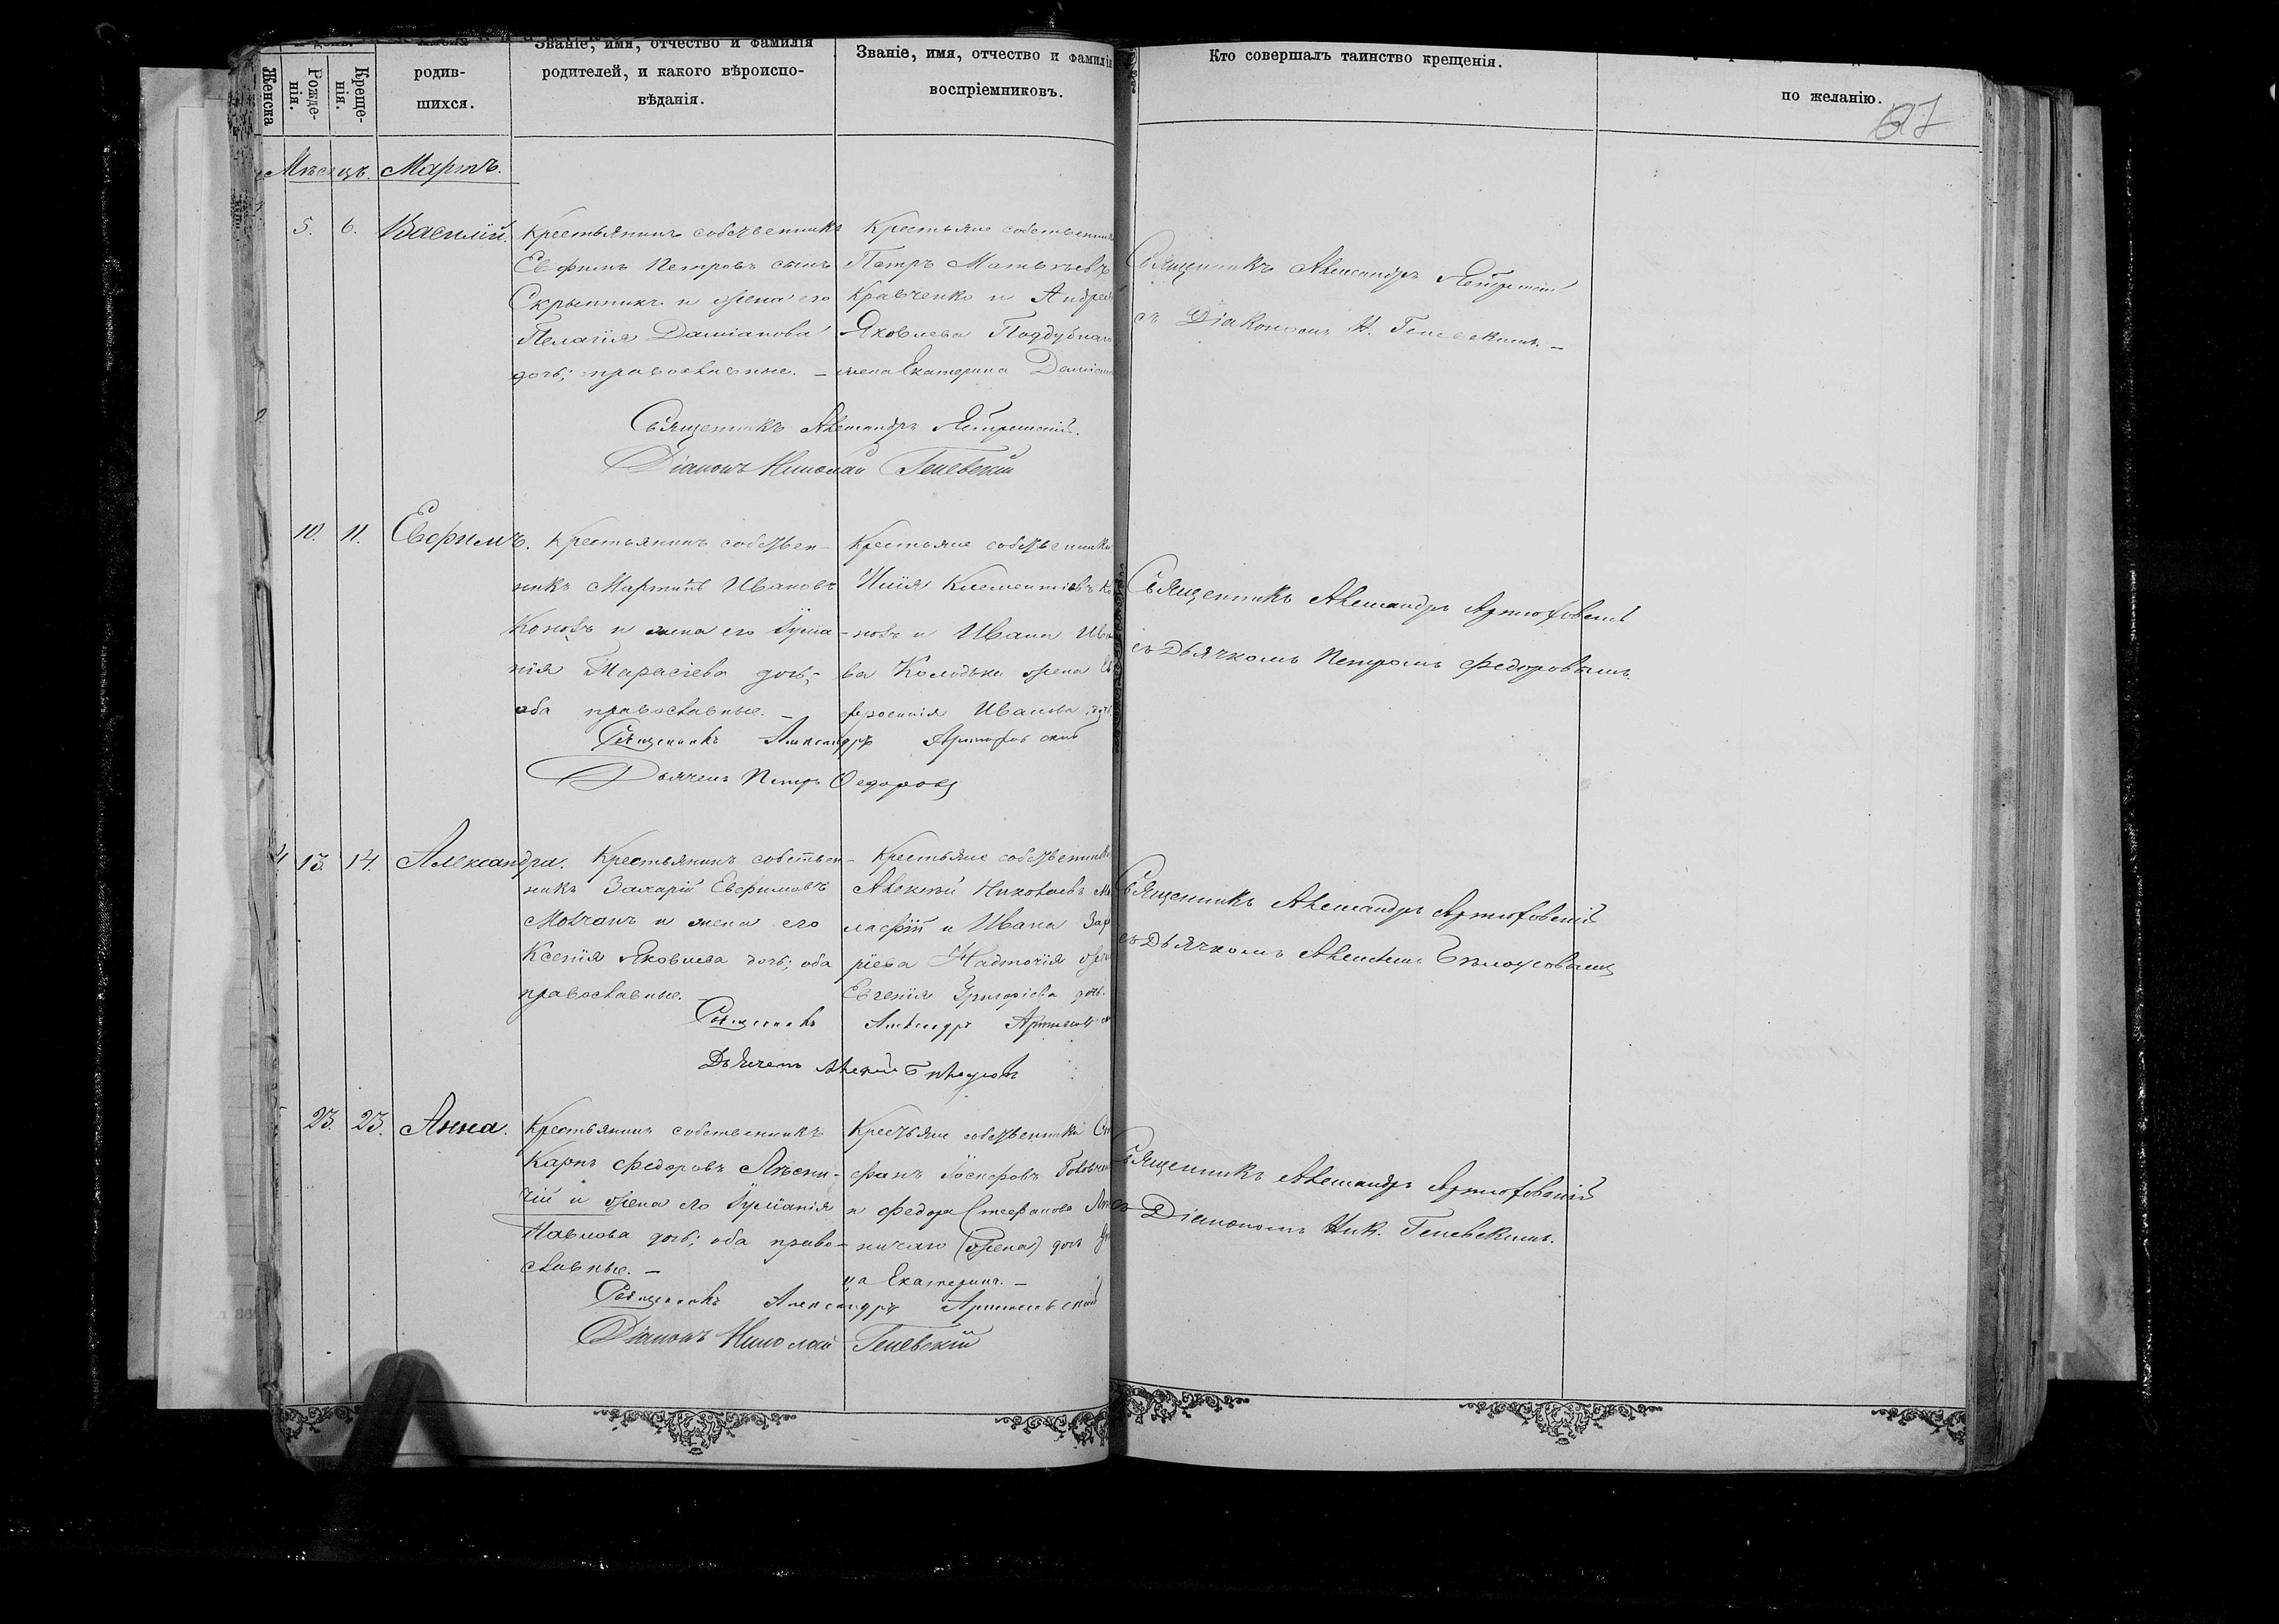 Женска
Рожде-
нія.
Креще-
нія.
родив-
шихся.
Званіе, имя, отчество и фамилія
родителей, и какого вѣроиспо-
вѣданія.
Званіе, имя, отчество и фамилія
воспріемниковъ.
Кто совершалъ таинство крещенія.
по желанію.
Мѣсяцъ Мартъ.
5. 6. Василій.
Крестьянинъ собственникъ
Евфимъ Петровъ сынъ
Скрынникъ и жена его
Пелагія Даміанова
дочь; православные. –
Крестьяне собственники
Петръ Матвѣевъ
Кравченко и Андрея
Яковлева Поддубнаго
жена Екатерина
Священникъ Александръ
съ Діакономъ Н. Геневскимъ. –
Священникъ Александръ
Діаконъ Николай Геневскій
10. 11. Евфимъ.
Крестьянинъ собствен-
никъ Мартинъ Ивановъ
Коновъ и жена его Іулiа-
нія Тарасіева дочь;
оба православные. –
Крестьяне собственники
Илія Климентіевъ
новъ и Ивана
ва Колодки жена
фросинія Иванова дочь
Священникъ Александръ Артюховскій
съ Дьячкомъ Петромъ Федоровымъ.
Священникъ Александръ Артюховскій
Дьячекъ Петръ Федоровъ
13. 14. Александра.
Крестьянинъ собствен-
никъ Захарій Евфимовъ
Мовчанъ и жена его
Ксенія Яковлева дочь; оба
православные. –
Крестьяне собственники
Алексѣй Николаевъ
и Ивана
ріева Надточія
Евгенія Григоріева дочь.
Священникъ Александръ Артюховскій
съ Дьячкомъ Алексѣемъ Бѣлоусовымъ
Священникъ Александръ
Дьячекъ Алексѣй Бѣлоусовъ
23. 23. Анна.
Крестьянинъ собственникъ
Карпъ Федоровъ Лѣсни-
чій и жена его Іуліанія
Павлова дочь; оба право-
славные. –
Крестьяне собственники
фанъ Іосифовъ
и Федора Стефанова
ничаго (жена) дочь
ца Екатерина. –
Священникъ Александръ Артюховскій
съ Діакономъ Ник. Геневскимъ.
Священникъ Александръ Артюховскій
Діаконъ Николай Геневскій